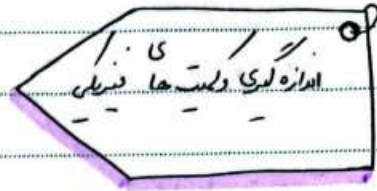 اندازه گیری و کمیت های فیزیکی